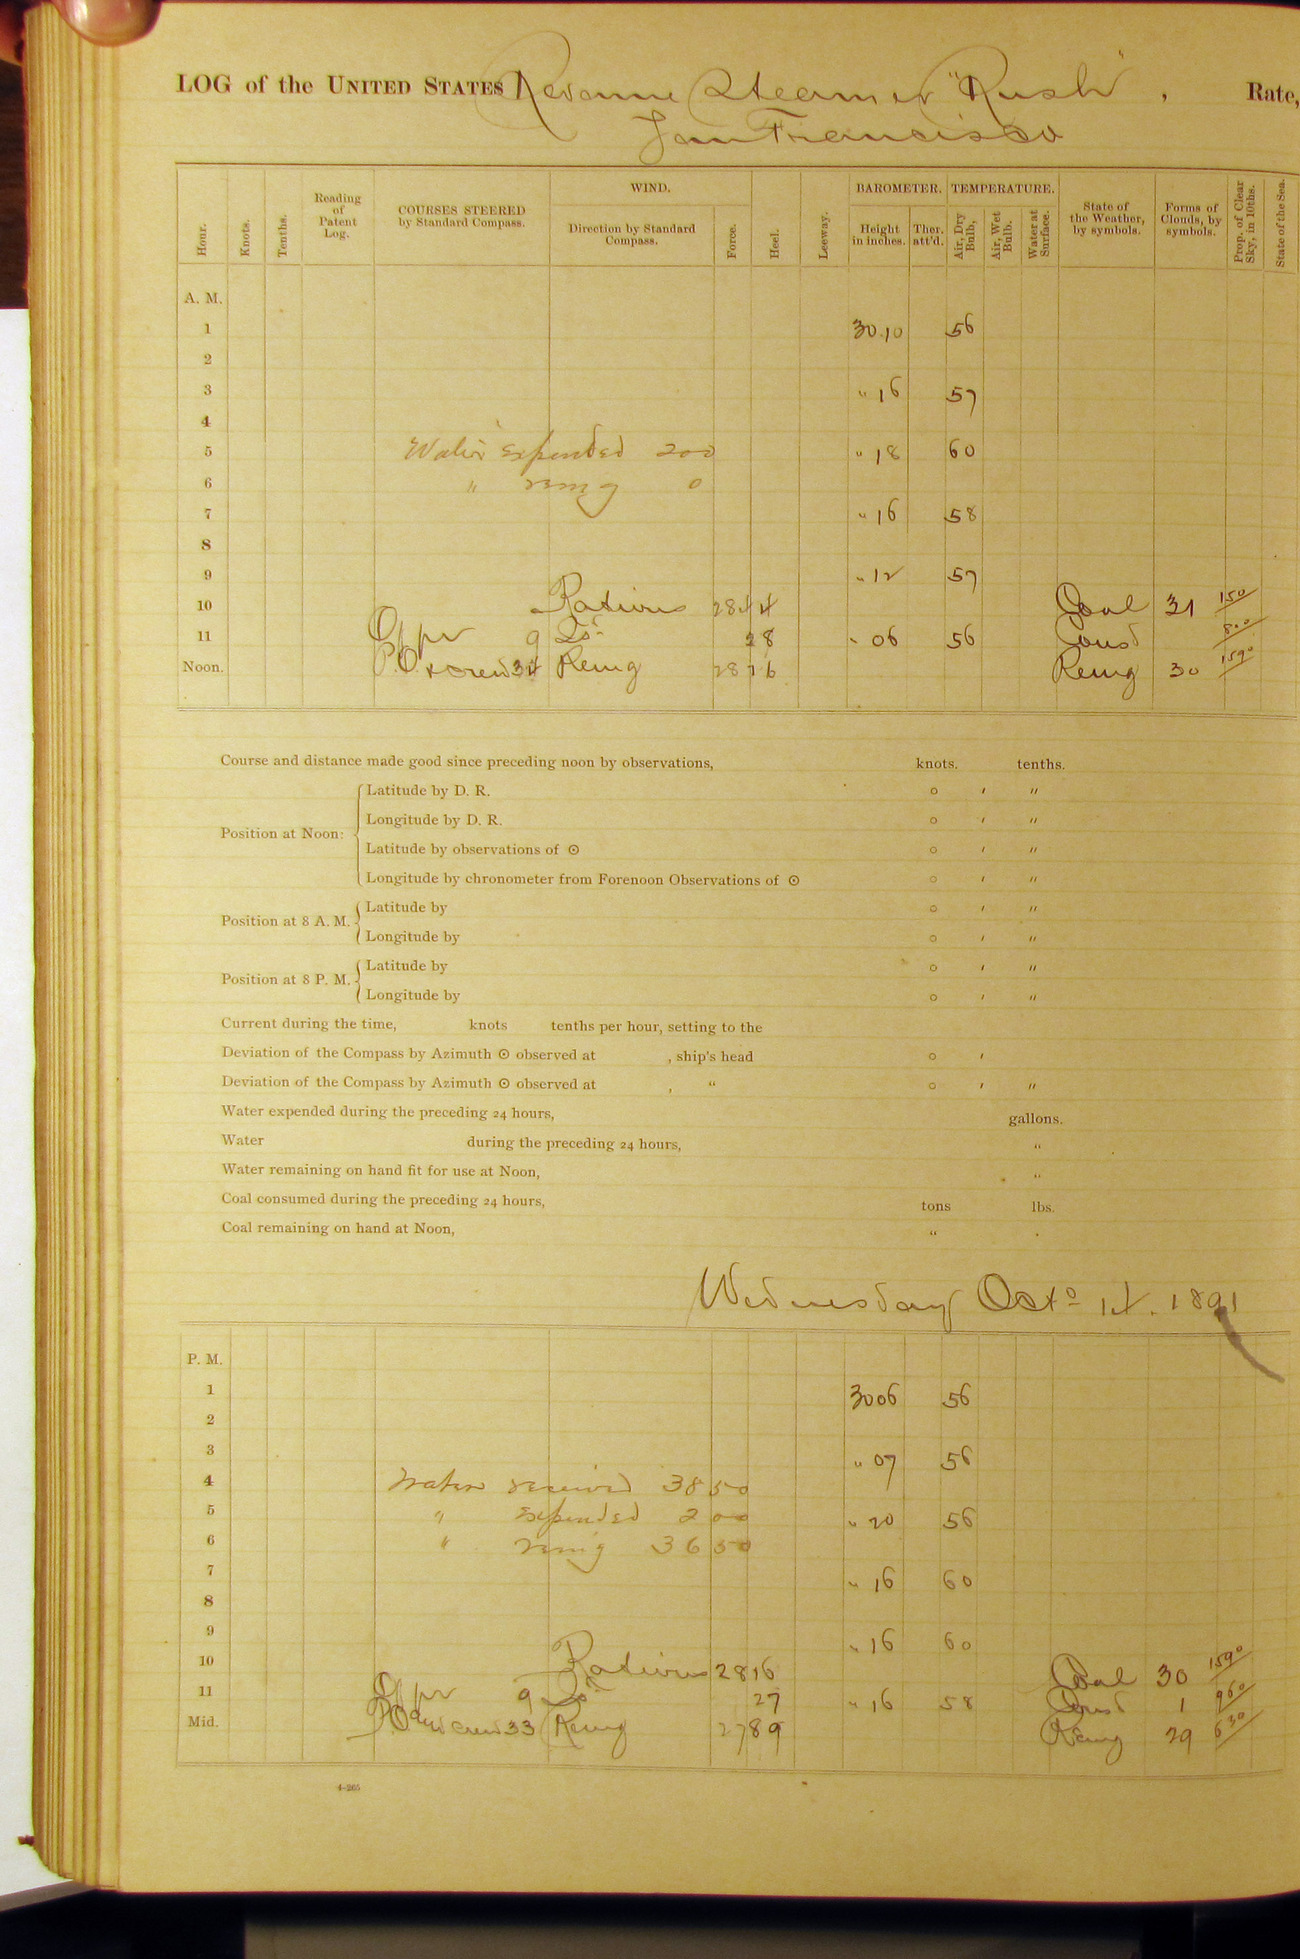 LOG of the UNITED STATES Revenue Steamer "Rush", Rate,
San Francisco
Hour. Knots. Tenths. Reading of Patent Log. COURSES STEERED by Standard Compass. WIND. Direction by Standard Compass. Force. Heel. Leeway. BAROMETER. Height in inches. Ther. att'd. TEMPERATURE. Air, Dry Bulb, Air, Wet Bulb. Water at Surface. State of the Weather, by symbols. Forms of Clouds, by symbols. Prop. of Clear Sky, in 10ths. State of the Sea.
A. M.
1 30.10 56
2
3 " 16 57
4
5 Water expended 200 " 18 60
6 " remg 0
7 " 16 58
8
9 " 12 57
10 Rations 2844 Coal 31 150
11 Offrs 9 Do 28 " 06 56 Consd 800
Noon. P.O. & Crew 34 Remg 2816 Remg 30 1590
Course and distance made good since preceding noon by observations, knots. tenths.
Position at Noon: Latitude by D. R. ° ′ ″
Longitude by D. R. ° ′ ″
Latitude by observations of ☉ ° ′ ″
Longitude by chronometer from Forenoon Observations of ☉ ° ′ ″
Position at 8 A. M. Latitude by ° ′ ″
Longitude by ° ′ ″
Position at 8 P. M. Latitude by ° ′ ″
Longitude by ° ′ ″
Current during the time, knots tenths per hour, setting to the
Deviation of the Compass by Azimuth ☉ observed at , ship's head ° ′
Deviation of the Compass by Azimuth ☉ observed at , " ° ′ ″
Water expended during the preceding 24 hours, gallons.
Water during the preceding 24 hours, "
Water remaining on hand fit for use at Noon, "
Coal consumed during the preceding 24 hours, tons lbs.
Coal remaining on hand at Noon, " "
Wednesday Octo 14. 1891
P. M.
1 3006 56
2
3 " 07 56
4 Water received 3850
5 " expended 200 " 20 56
6 " remg 3650
7 " 16 60
8
9 " 16 60
10 Rations 2816 Coal 30 1590
11 Offrs 9 Do 27 " 16 58 Consd 1 960
Mid. P.O. and crew 33 Remg 2789 Remg 29 630
4-265